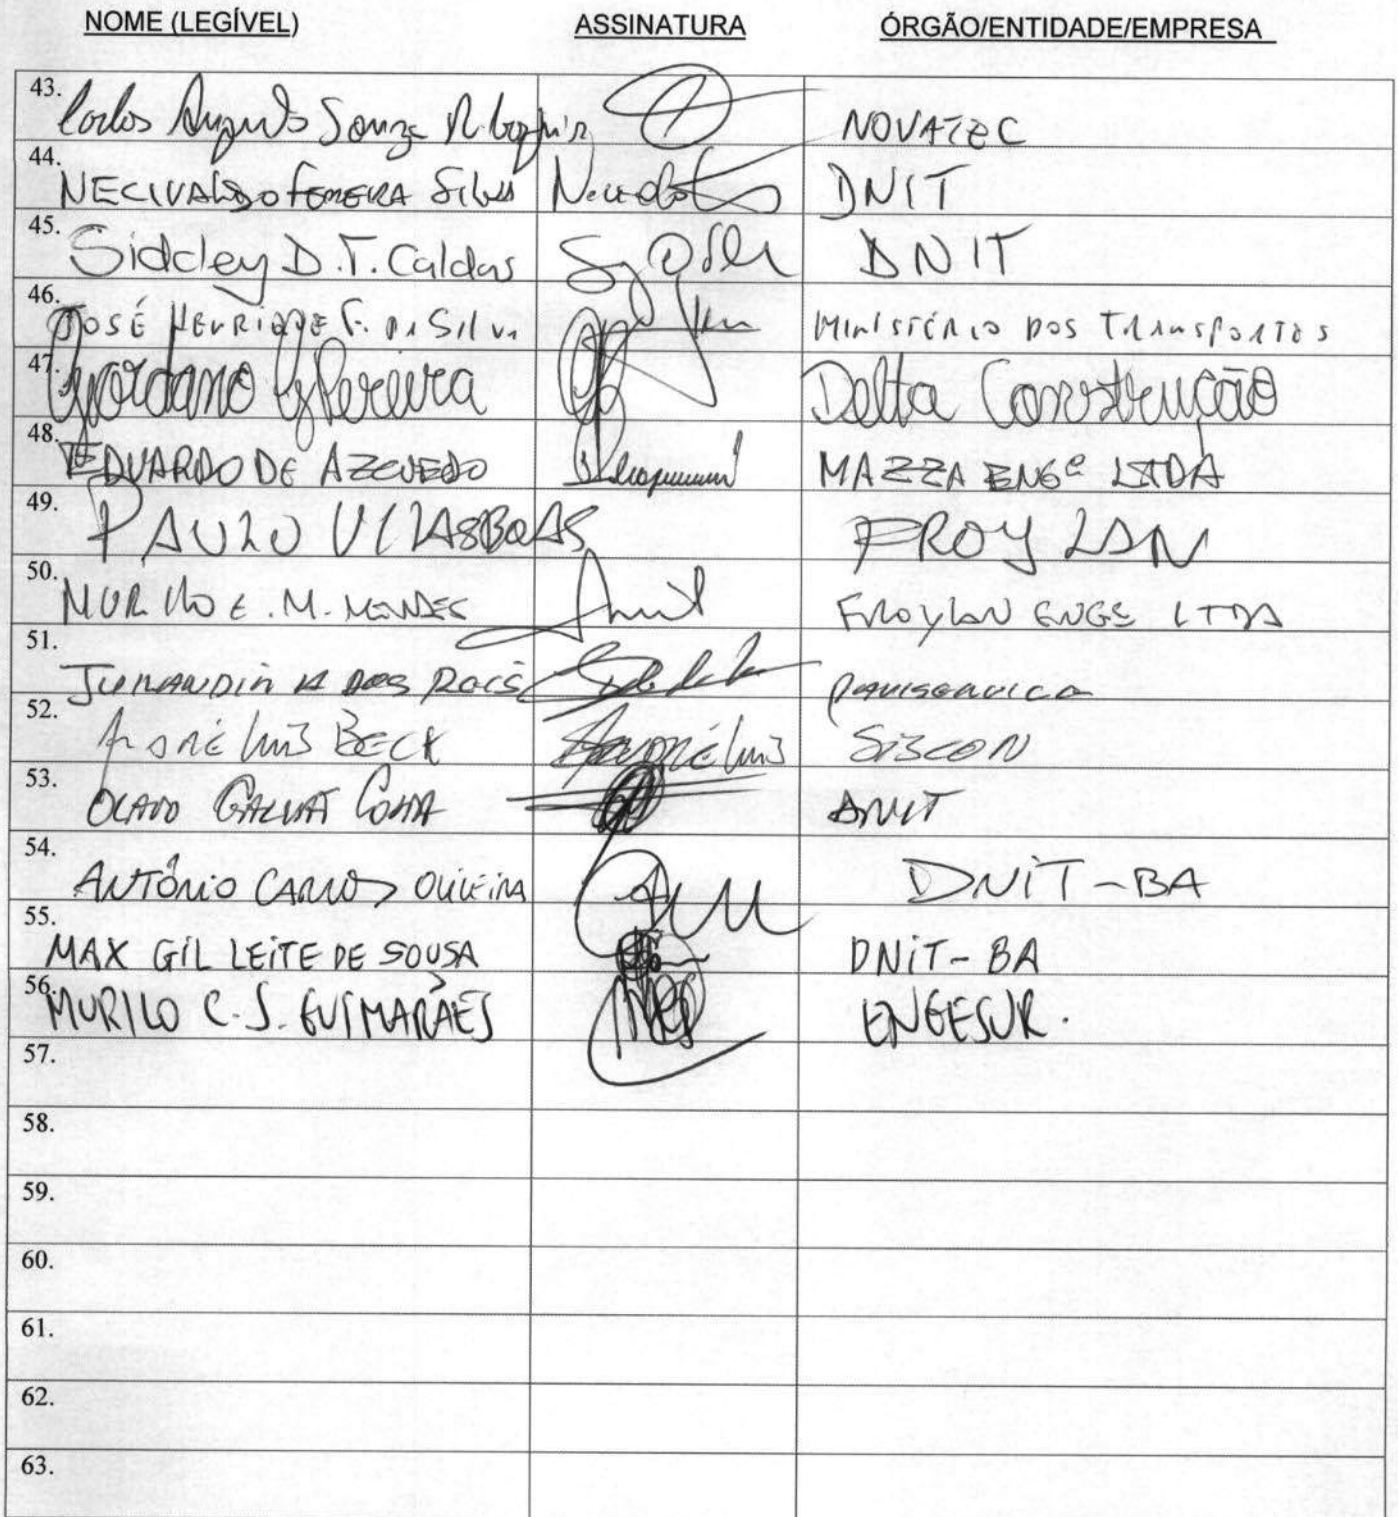 NOME (LEGÍVEL) ASSINATURA ÓRGÃO/ENTIDADE/EMPRESA
43. Carlos Augusto Souza NOVATEC
44. NECIVALDO FERREIRA SILVA DNIT
45. Sidcley D.T. Caldas DNIT
46. JOSÉ HENRIQUE F. DA SILVA MINISTÉRIO DOS TRANSPORTES
47. Giordano G Pereira Delta Construção
48. EDUARDO DE AZEVEDO MAZZA ENGª LTDA
49. PAULO VILASBOAS FROYLAN
50. MURILLO E. M. MENDES FROYLAN ENGª LTDA
51. JURANDIR DOS REIS PAVISERVICE
52. ANDRÉ LUIS BECK André Luis SISCON
53. OLAVO GALVÃO DNIT
54. ANTÔNIO CARLOS OLIVEIRA DNIT-BA
55. MAX GIL LEITE DE SOUSA DNIT-BA
56. MURILO C. S. GUIMARÃES ENGESUR.
57.
58.
59.
60.
61.
62.
63.